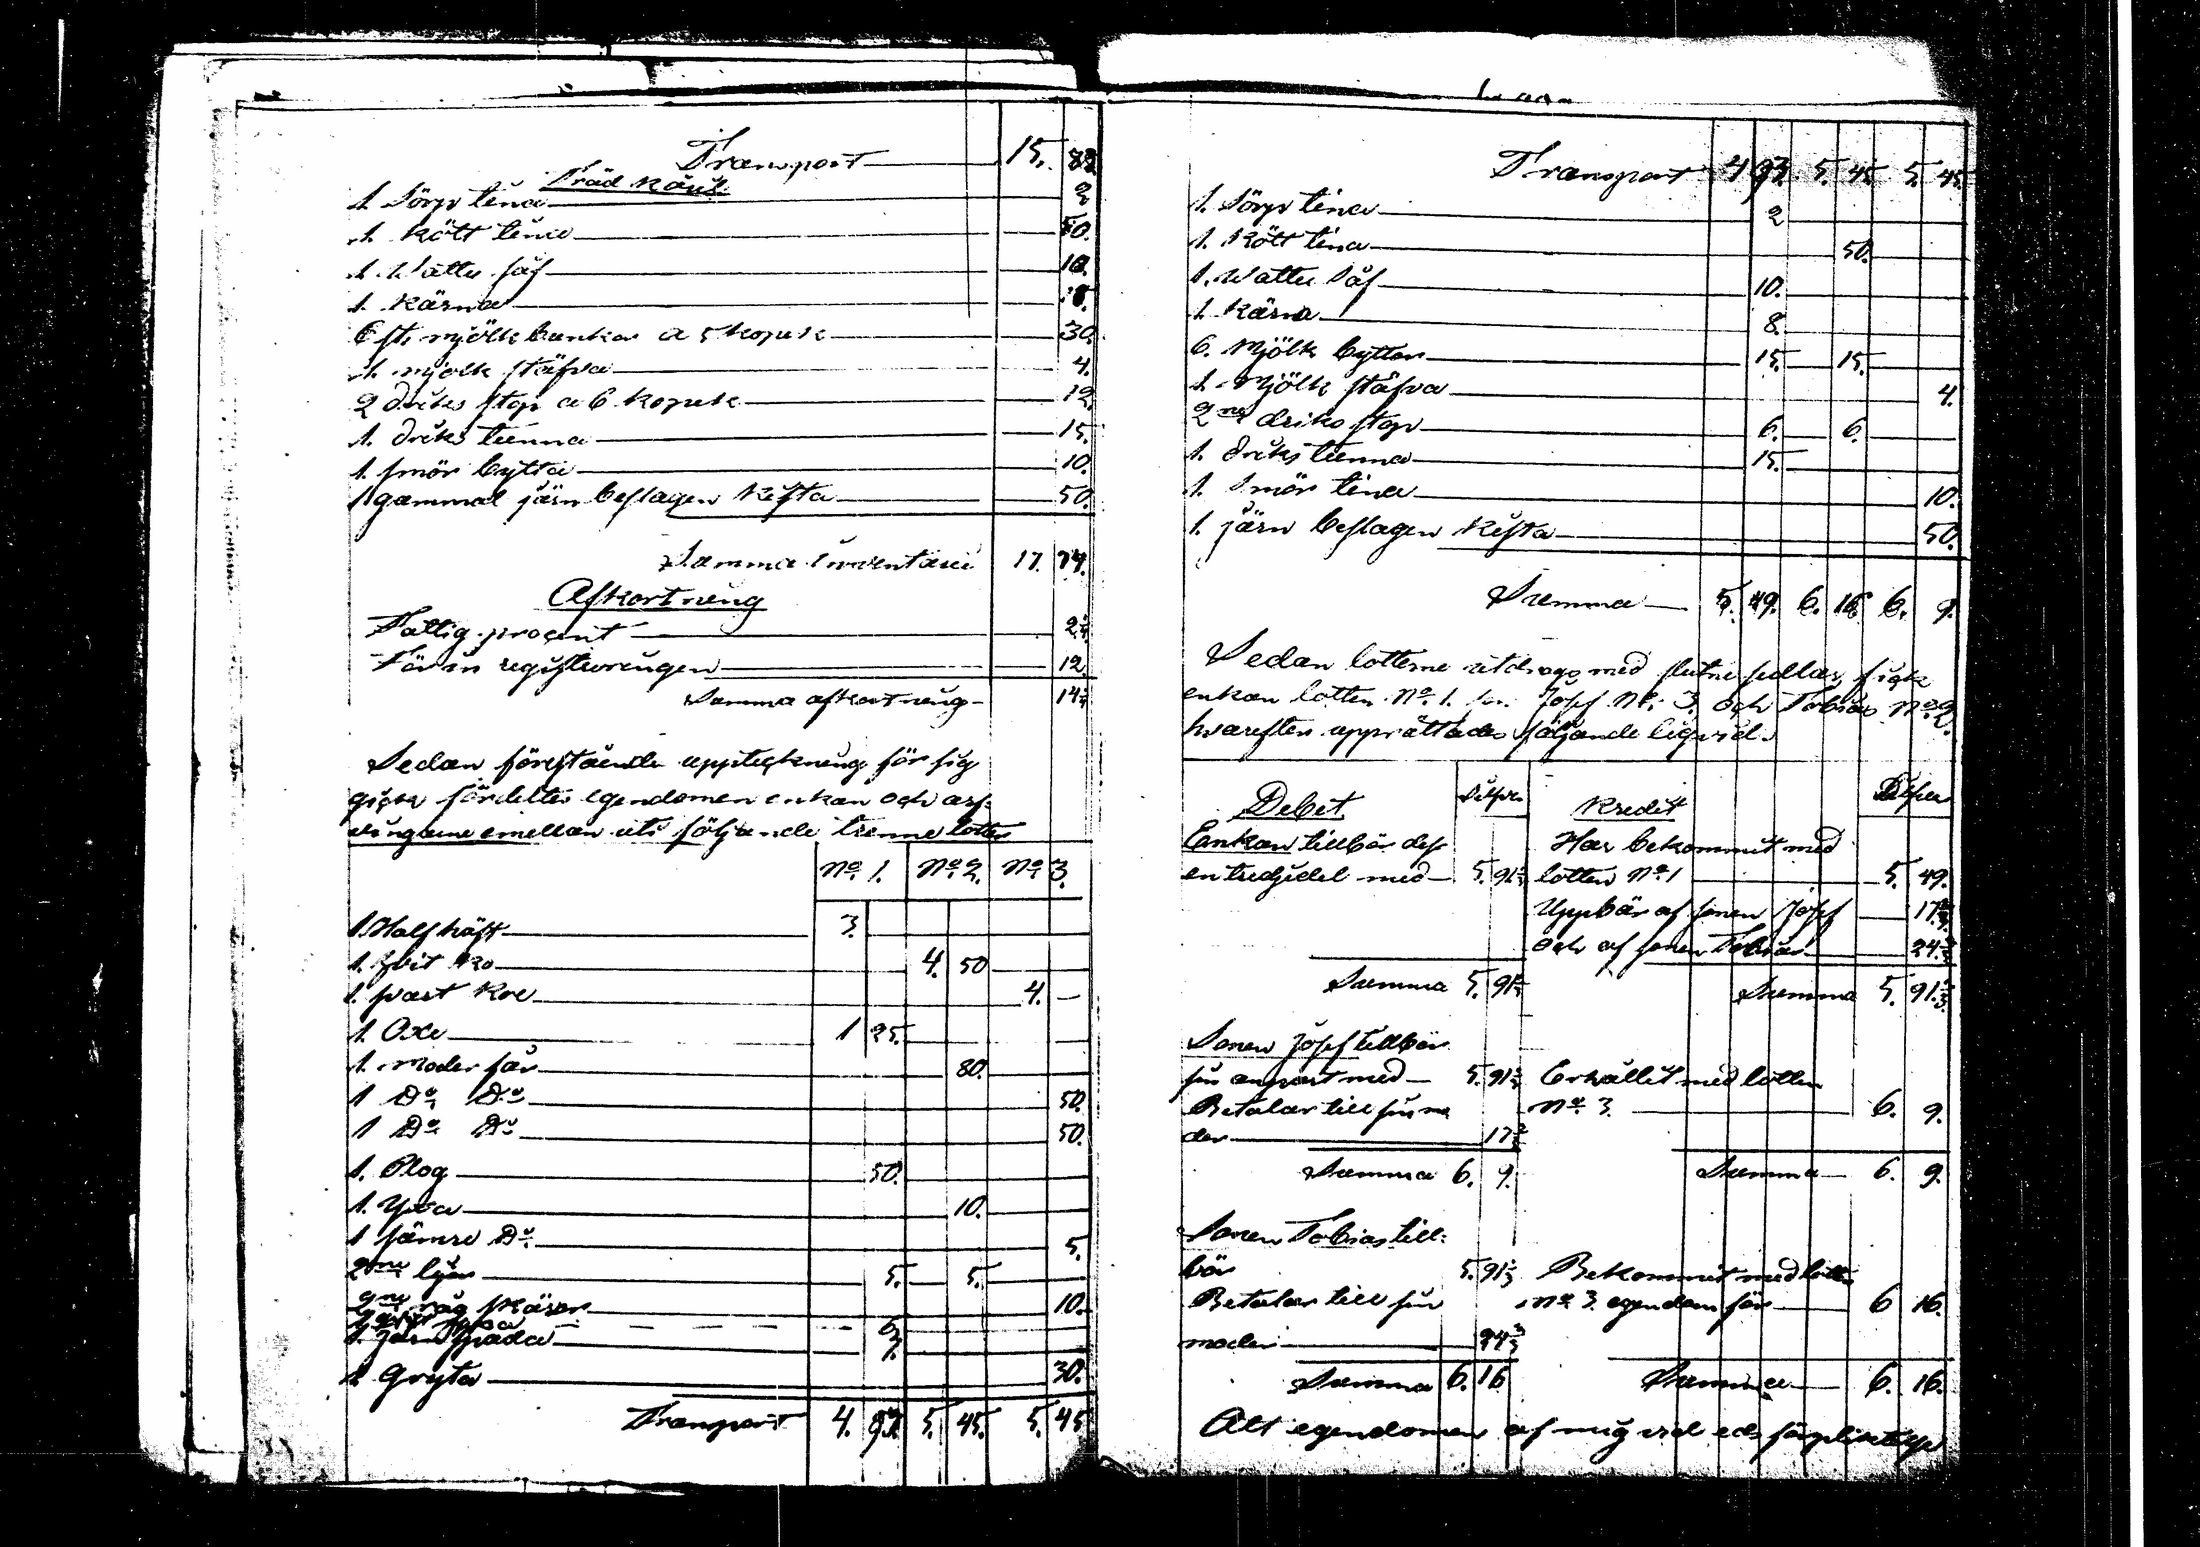 Transport 15. 83
Träd Käril
1. Sörp tina 2
1. Kött tina 50.
1. Wattu så̊f 10.
1. Kärna 8.
6 st. mjölk bunkar a 5 kopek 30.
1. mjölk stäfva 4.
2 driks stop a 6 kopek 12.
1. driks tunna 15.
1. smör bytta 10.
1 gammal järn beslagen Kista 50.
Summa Inventarii 17. 74.
Afkortning
Fattig procent 2 1/4
För in registreringen 12
Summa afkortning 14 1/4
Sedan förestående uppteckning för sig
gick fördeltes egendomen enkan och arf-
vingarne emellan uti följande trenne lotter
No. 1. No. 2. No. 3.
1. Half häst 3.
1. hvit Ko 4. 50
1. svart Ko 4. —
1. Oxe 1 25.
1. moder får 80.
1 Do Do 50.
1 Do Do 50.
1. Plog 50.
1. Yxa 10.
1 sämre Do 5.
2ne liar 5. 5.
2ne råg skäror 10.
6
1. Järn spada 7.
1 Gryta 30.
Transport 4. 93. 5. 45. 5. 45
Transport 4 93. 5. 45. 5. 45.
1. Sörp tina 2
1. Kött tina 50.
1. Wattu Såf 10.
1 Kärna 8.
6. Mjölk byttor 15. 15.
1. Mjölk stäfva 4.
2ne driks stop 6. 6.
1. driks tunna 15.
1. Smör tina 10.
1. järn beslagen Kista 50.
Summa 5. 49. 6. 16 6. 9.
Sedan lotterne utdrogs med slutne sedlar, fick
enkan lotten No. 1. Josef No. 3. och Tobias No. 2
hvareften upprättades följande liqvid.
Debet Silfver Kredit Silfver
Enkan tillbör dess Har bekommit med
en tredjedel med 5. 91 2/3 lotten No. 1 5. 49.
Uppbär af sonen Josef 17 1/3
och af sonen Tobias 24 1/3
Summa 5. 91 2/3 Summa 5. 91 2/3
Sonen Josef tillbör
sin anpart med 5. 91 2/3 Erhållit med lotten
Betalar till sin mo No. 3. 6. 9.
der 17 1/3
Summa 6. 9. Summa 6. 9.
Sonen Tobias till-
bör 5. 91 2/3 Bekommit med lotten
Betalar till sin No. 3 egendom för 6 16.
moder 24 1/3
Summa 6. 16 Summa 6. 16.
Alt egendomen af mig vid eds förpliktelse